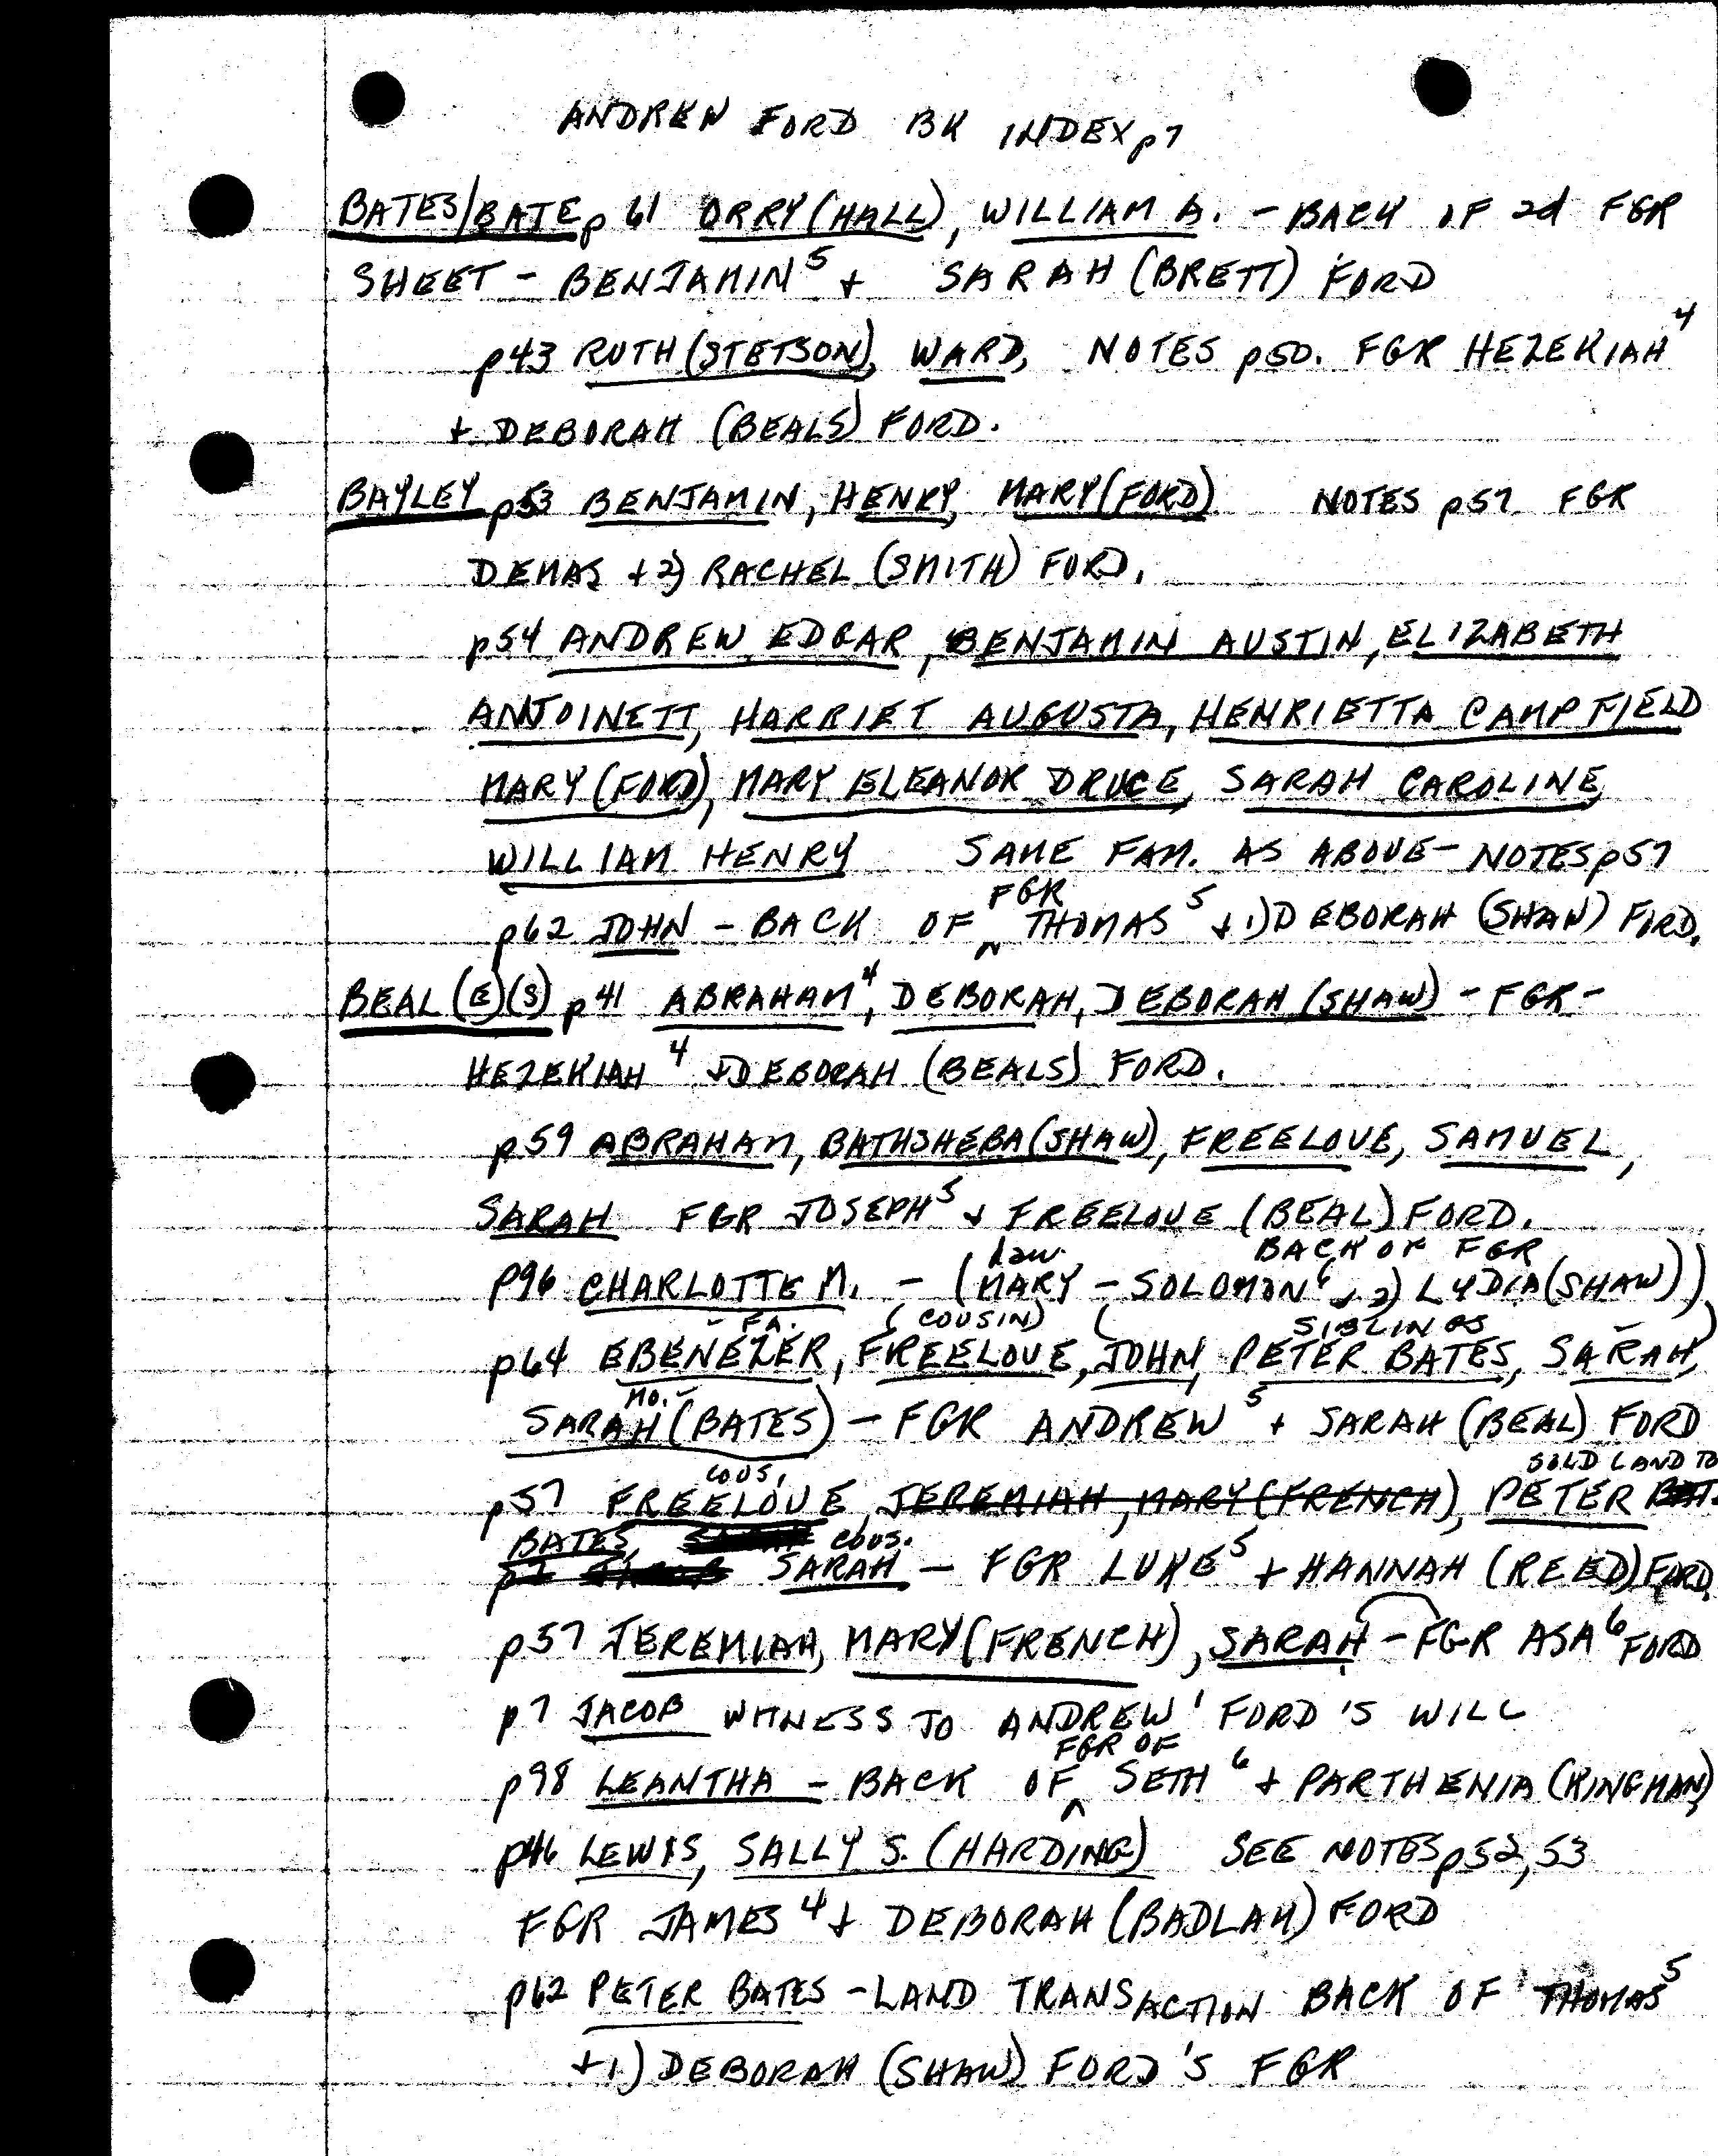 ANDREW FORD BK INDEX p7
BATES/BATE p 61 ORRY (HALL), WILLIAM A. - BACK OF 2d FGR
SHEET - BENJAMIN⁵ + SARAH (BRETT) FORD
p43 RUTH (STETSON), WARD, NOTES p50. FGR HEZEKIAH⁴
+ DEBORAH (BEALS) FORD.
BAYLEY p53 BENJAMIN, HENRY, MARY (FORD) NOTES p57 FGR
DEMAS + 2) RACHEL (SMITH) FORD.
p54 ANDREW EDGAR, BENJAMIN AUSTIN, ELIZABETH
ANTOINETT, HARRIET AUGUSTA, HENRIETTA CAMPFIELD
MARY (FORD), MARY ELEANOR DRUCE, SARAH CAROLINE,
WILLIAM HENRY SAME FAM. AS ABOVE - NOTES p57
FGR
p62 JOHN - BACK OF ^ THOMAS⁵ + 1) DEBORAH (SHAW) FORD.
BEAL (E)(S) p41 ABRAHAM⁴, DEBORAH, DEBORAH (SHAW) - FGR -
HEZEKIAH⁴ + DEBORAH (BEALS) FORD.
p59 ABRAHAM, BATHSHEBA (SHAW), FREELOVE, SAMUEL,
SARAH FGR JOSEPH⁵ + FREELOVE (BEAL) FORD.
daw. BACK OF FGR
p96 CHARLOTTE M. - (MARY - SOLOMON⁶ + 2) LYDIA (SHAW))
- FA. (COUSIN) ( SIBLINGS )
p64 EBENEZER, FREELOVE, JOHN, PETER BATES, SARAH,
MO. -
SARAH (BATES) - FGR ANDREW⁵ + SARAH (BEAL) FORD
cous. SOLD LAND TO
p57 FREELOVE, JEREMIAH, MARY (FRENCH), PETER BAT.
BATES, cous.
SARAH - FGR LUKE⁵ + HANNAH (REED) FORD.
p57 JEREMIAH, MARY (FRENCH), SARAH - FGR ASA⁶ FORD
p7 JACOB WITNESS TO ANDREW¹ FORD'S WILL
FGR OF
p98 LEANTHA - BACK OF ^ SETH⁶ + PARTHENIA (KINGMAN)
p46 LEWIS, SALLY S. (HARDING) SEE NOTES p52, 53
FGR JAMES⁴ + DEBORAH (BADLAM) FORD
p62 PETER BATES - LAND TRANSACTION BACK OF THOMAS⁵
+ 1) DEBORAH (SHAW) FORD'S FGR